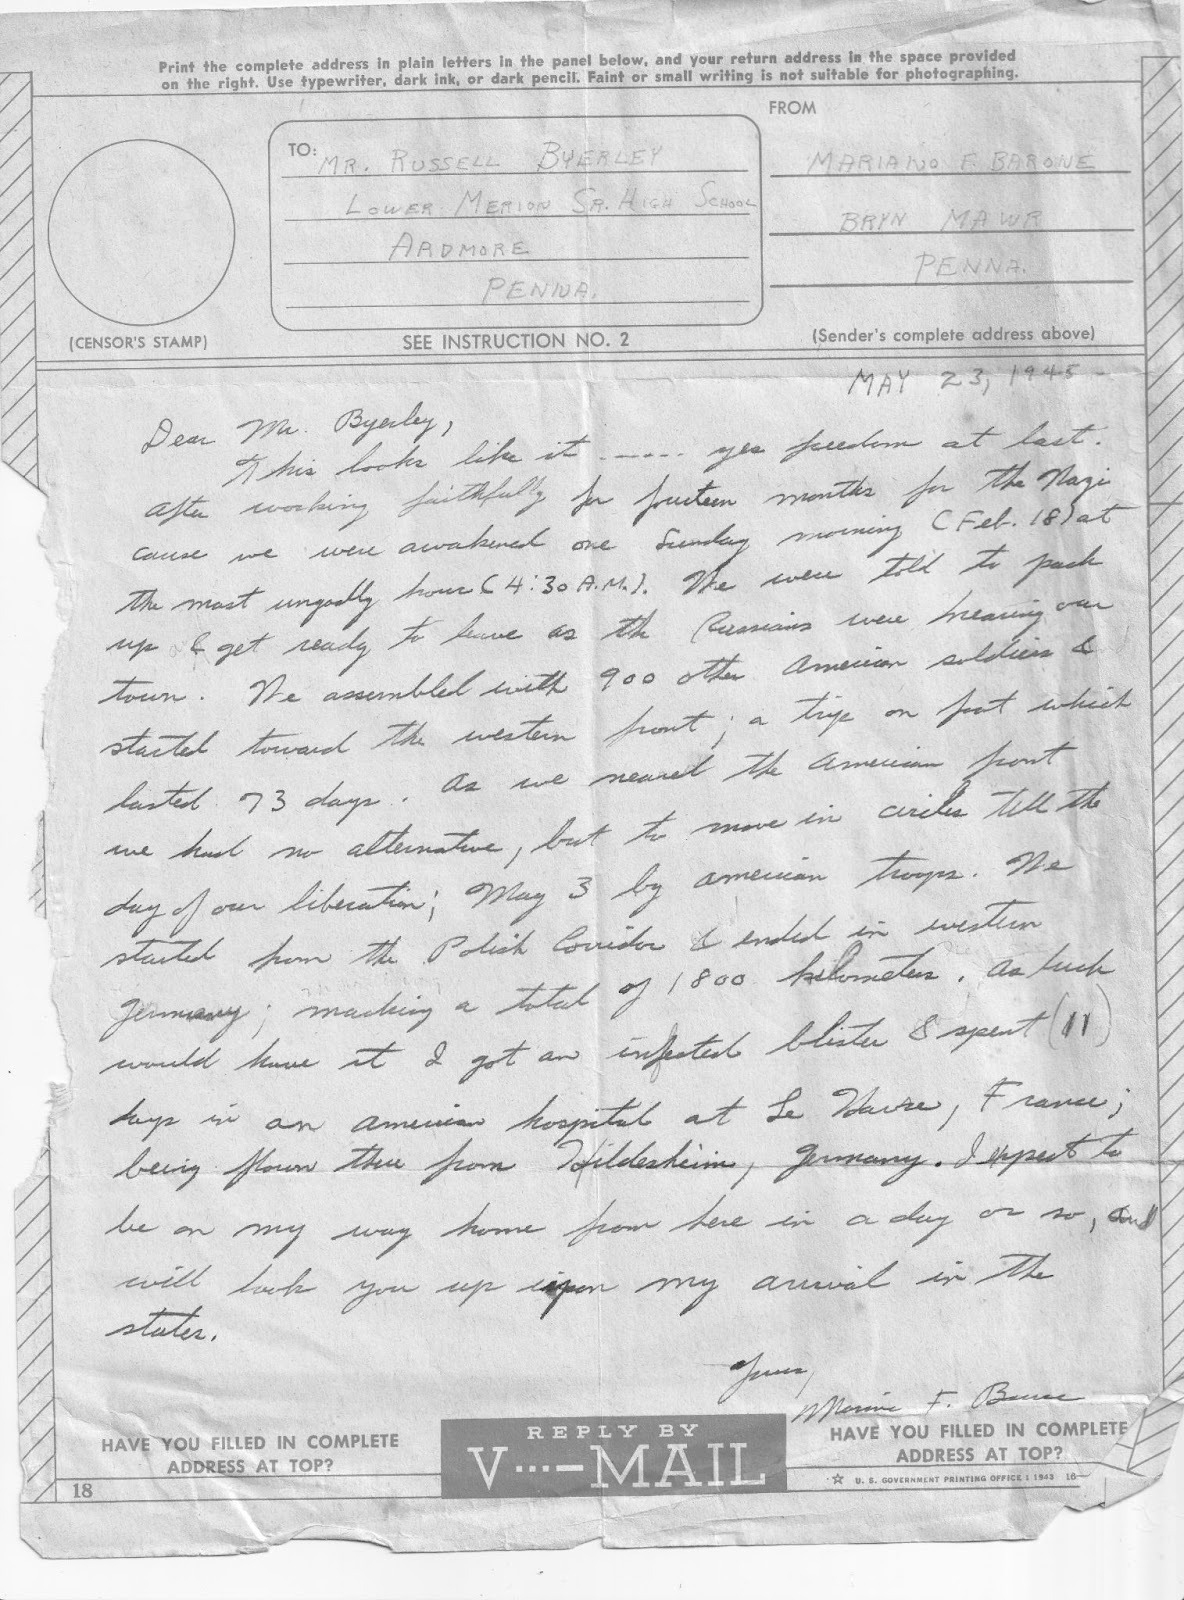 Print the complete address in plain letters in the panel below, and your return address in the space provided
on the right. Use typewriter, dark ink, or dark pencil. Faint or small writing is not suitable for photographing.
FROM
TO: MR. RUSSELL BYERLEY
LOWER MERION SR. HIGH SCHOOL
ARDMORE
PENNA.
MARIANO F. BARONE
BRYN MAWR
PENNA.
(CENSOR'S STAMP)
SEE INSTRUCTION NO. 2
(Sender's complete address above)
MAY 23, 1945
Dear Mr. Byerley,
This looks like it ----- yes freedom at last.
After working faithfully for fourteen months for the Nazi
cause we were awakened one Sunday morning (Feb. 18) at
the most ungodly hour (4:30 A.M.). We were told to pack
up & get ready to leave as the Russians were nearing our
town. We assembled with 900 other American soldiers &
started toward the western front; a trip on foot which
lasted 73 days. As we neared the American front
we had no alternative, but to move in circles till the
day of our liberation; May 3 by American troops. We
started from the Polish Corridor & ended in western
Germany; marking a total of 1800 kilometers. As luck
would have it I got an infected blister & spent (11)
days in an American hospital at Le Havre, France;
being flown there from Hildesheim, Germany. I expect to
be on my way home from here in a day or so, and
will look you up upon my arrival in the
states.
Yours,
F. Barone
HAVE YOU FILLED IN COMPLETE
ADDRESS AT TOP?
REPLY BY
V···—MAIL
HAVE YOU FILLED IN COMPLETE
ADDRESS AT TOP?
18
☆ U. S. GOVERNMENT PRINTING OFFICE : 1943 16—